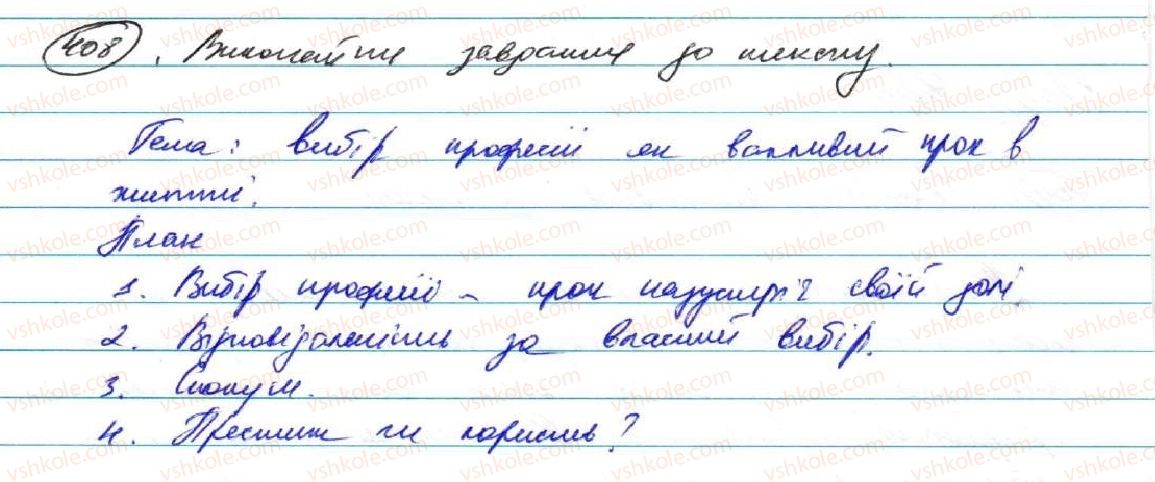 408. Виконайте завдання до тексту.
Тема: вибір професії як важливий крок в
житті.
План
1. Вибір професії - крок назустріч своїй долі.
2. Відповідальність за власний вибір.
3.
4. Престиж чи користь?
vshkole.com